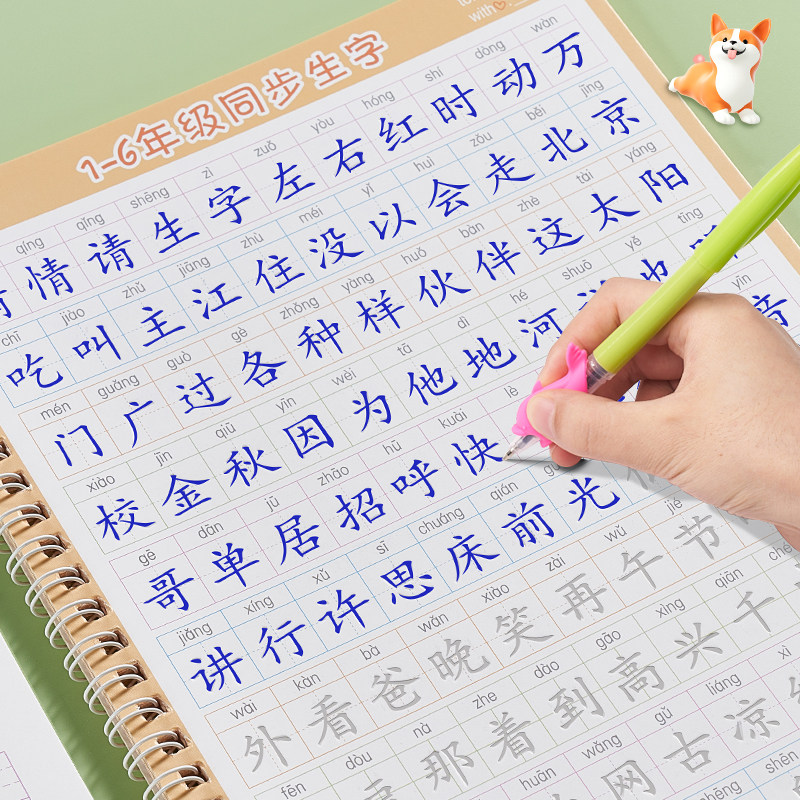 with
1-6年级同步生字
qíng qǐng shēng zì zuǒ yòu hóng shí dòng wàn
情 请 生 字 左 右 红 时 动 万
chī jiào zhǔ jiāng zhù méi yǐ huì zǒu běi jīng
吃 叫 主 江 住 没 以 会 走 北 京
mén guǎng guò gè zhǒng yàng huǒ bàn zhè tài yáng
门 广 过 各 种 样 伙 伴 这 太 阳
xiào jīn qiū yīn wèi tā dì hé shuō yě tīng
校 金 秋 因 为 他 地 河
gē dān jū zhāo hū kuài lè yīn
哥 单 居 招 呼 快 音
jiǎng xíng xǔ sī chuáng qián
讲 行 许 思 床 前 光
wài kàn bà wǎn xiào zài wǔ jié
外 看 爸 晚 笑 再 午 节
fēn dòu nà zhe dào gāo xìng qiān
那 着 到 高 兴 千
huān wǎng gǔ liáng xì
网 古 凉